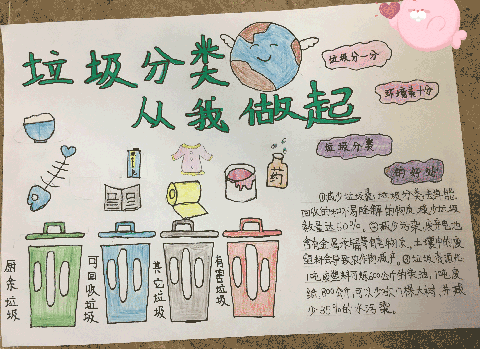 垃圾分类
从我做起
垃圾分一分
环境美十分
垃圾分类
的好处
厨余垃圾
可回收垃圾
其它垃圾
有害垃圾
药
①减少占地,垃圾分类去掉能
回收的
易降解的物质,减少垃圾
数量达50%。②减少污染,废弃电池
含有金属汞镉等有毒物质,土壤中的废
塑料会导致农作物减产。③变废为宝
1吨废塑料可
600公斤的柴油,1吨废
纸,
可以少砍17棵大树,并减
少35%的水污染。